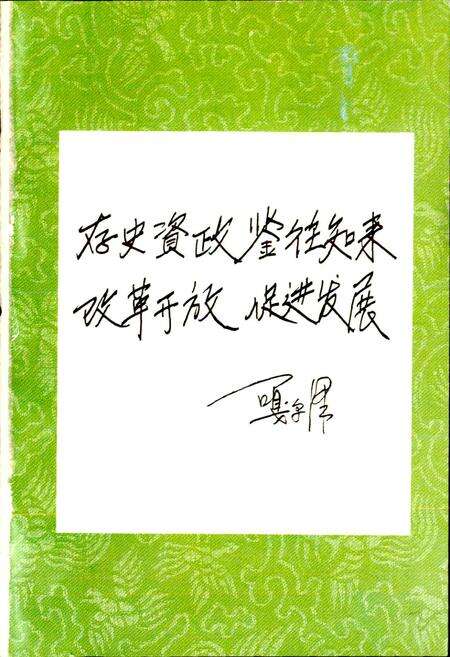 存史資政 鉴往知来
改革开放 促进发展